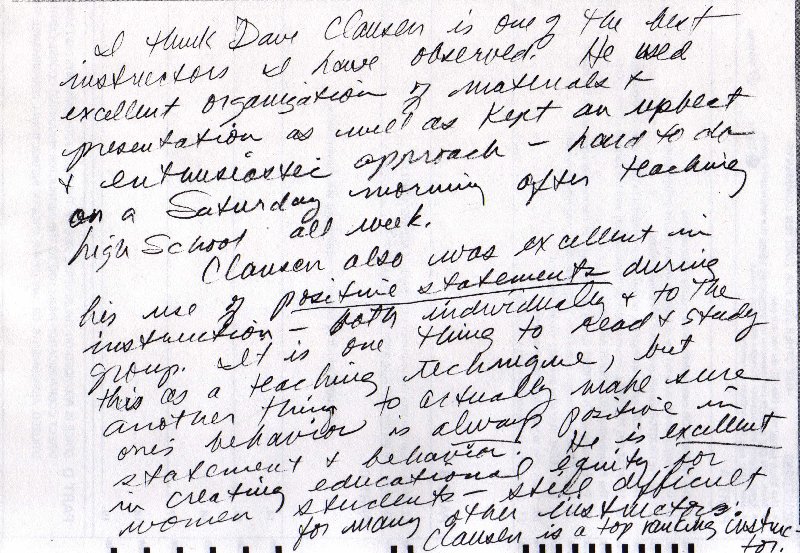 I think Dave Clausen is one of the best
instructors I have observed. He used
excellent organization of materials +
presentation as well as kept an upbeat
+ enthusiastic approach - hard to do
on a Saturday morning after teaching
high School all week.
Clausen also was excellent in
his use of positive statements during
instruction - both individually + to the
group. It is one thing to read + study
this as a teaching technique, but
another thing to actually make sure
one's behavior is always positive in
statement + behavior. He is excellent
in creating educational equity for
women students - still difficult
for many other instructors.
Clausen is a top ranking instruc-
tor.